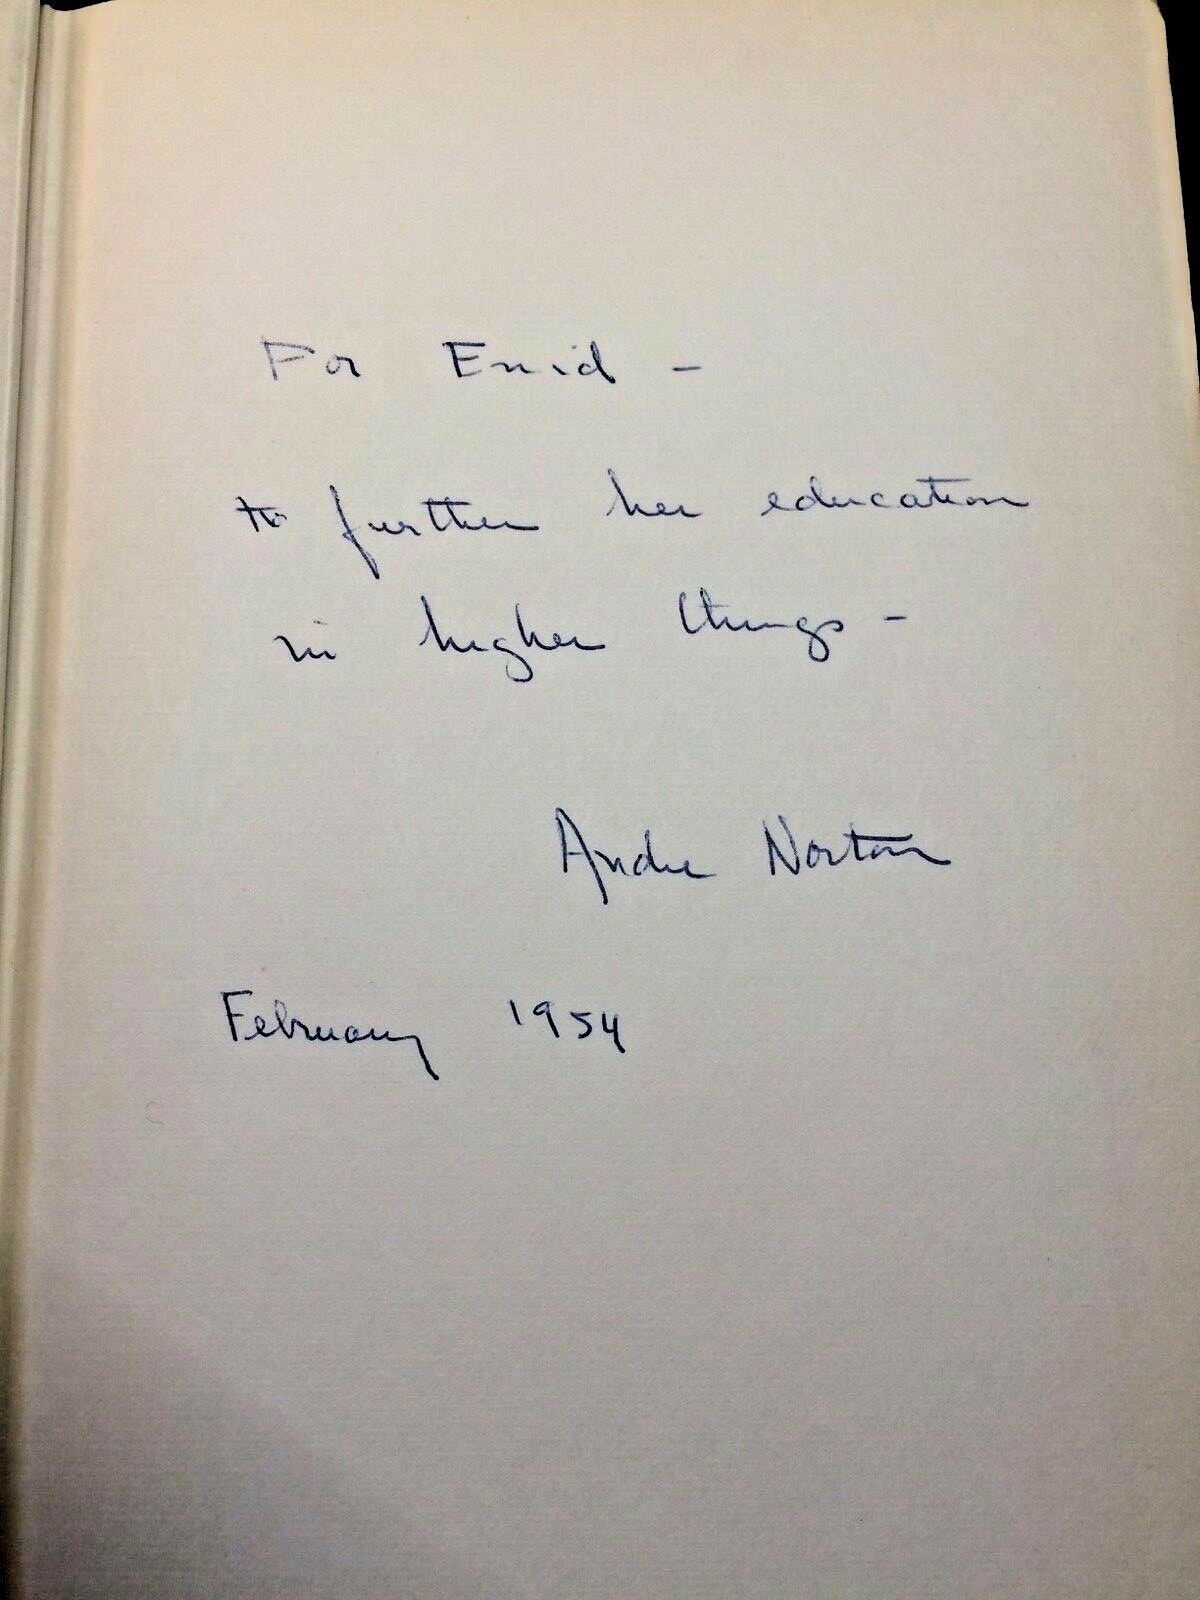 For Enid -
to further her education
in higher things -
Andre Norton
February 1954